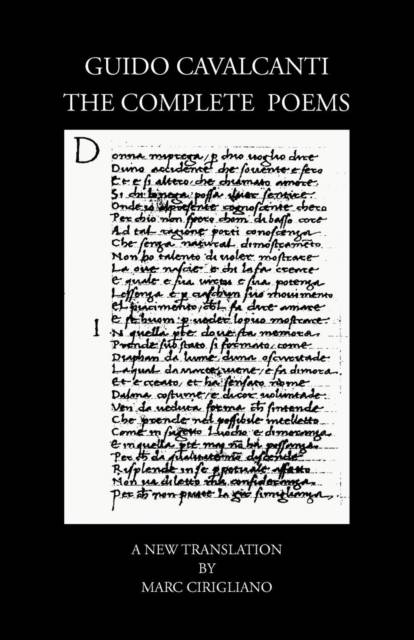 GUIDO CAVALCANTI
THE COMPLETE POEMS
Donna mi prega, p chio voglio dire
Duno accidente che sovente e fero
Et e si altero, che chiamato amore
Si chi lo nega possa
Onde
Per chio non spero chom di basso core
Ad tal ragione porti conoscenza
Che senza natural dimostramēto
Non ho talento di voler mostrare
La ove nascie e chi lo fa creare
E quale e sua virtu e sua potenza
Lessenza e suo movimento
El piacimento, fa dire amare
E se huom p veder lo puo mostrare
In quella pte dove sta memora
Prende suo stato si formato, come
Diaphan da lume, duna oscuritade
La qual da marte viene, e fa dimora
Et e creato, et ha sensato nome
Dalma costume, e di cor voluntade
Ven da veduta forma ch sintende
Che prende nel possibile intelletto
Come in luocho e dimoranza
E in quella pte mai possanza
Per ch da descende
Risplende in se effetto
Non ha diletto ma consideranza
Per ch non puote simiglianza
A NEW TRANSLATION
BY
MARC CIRIGLIANO